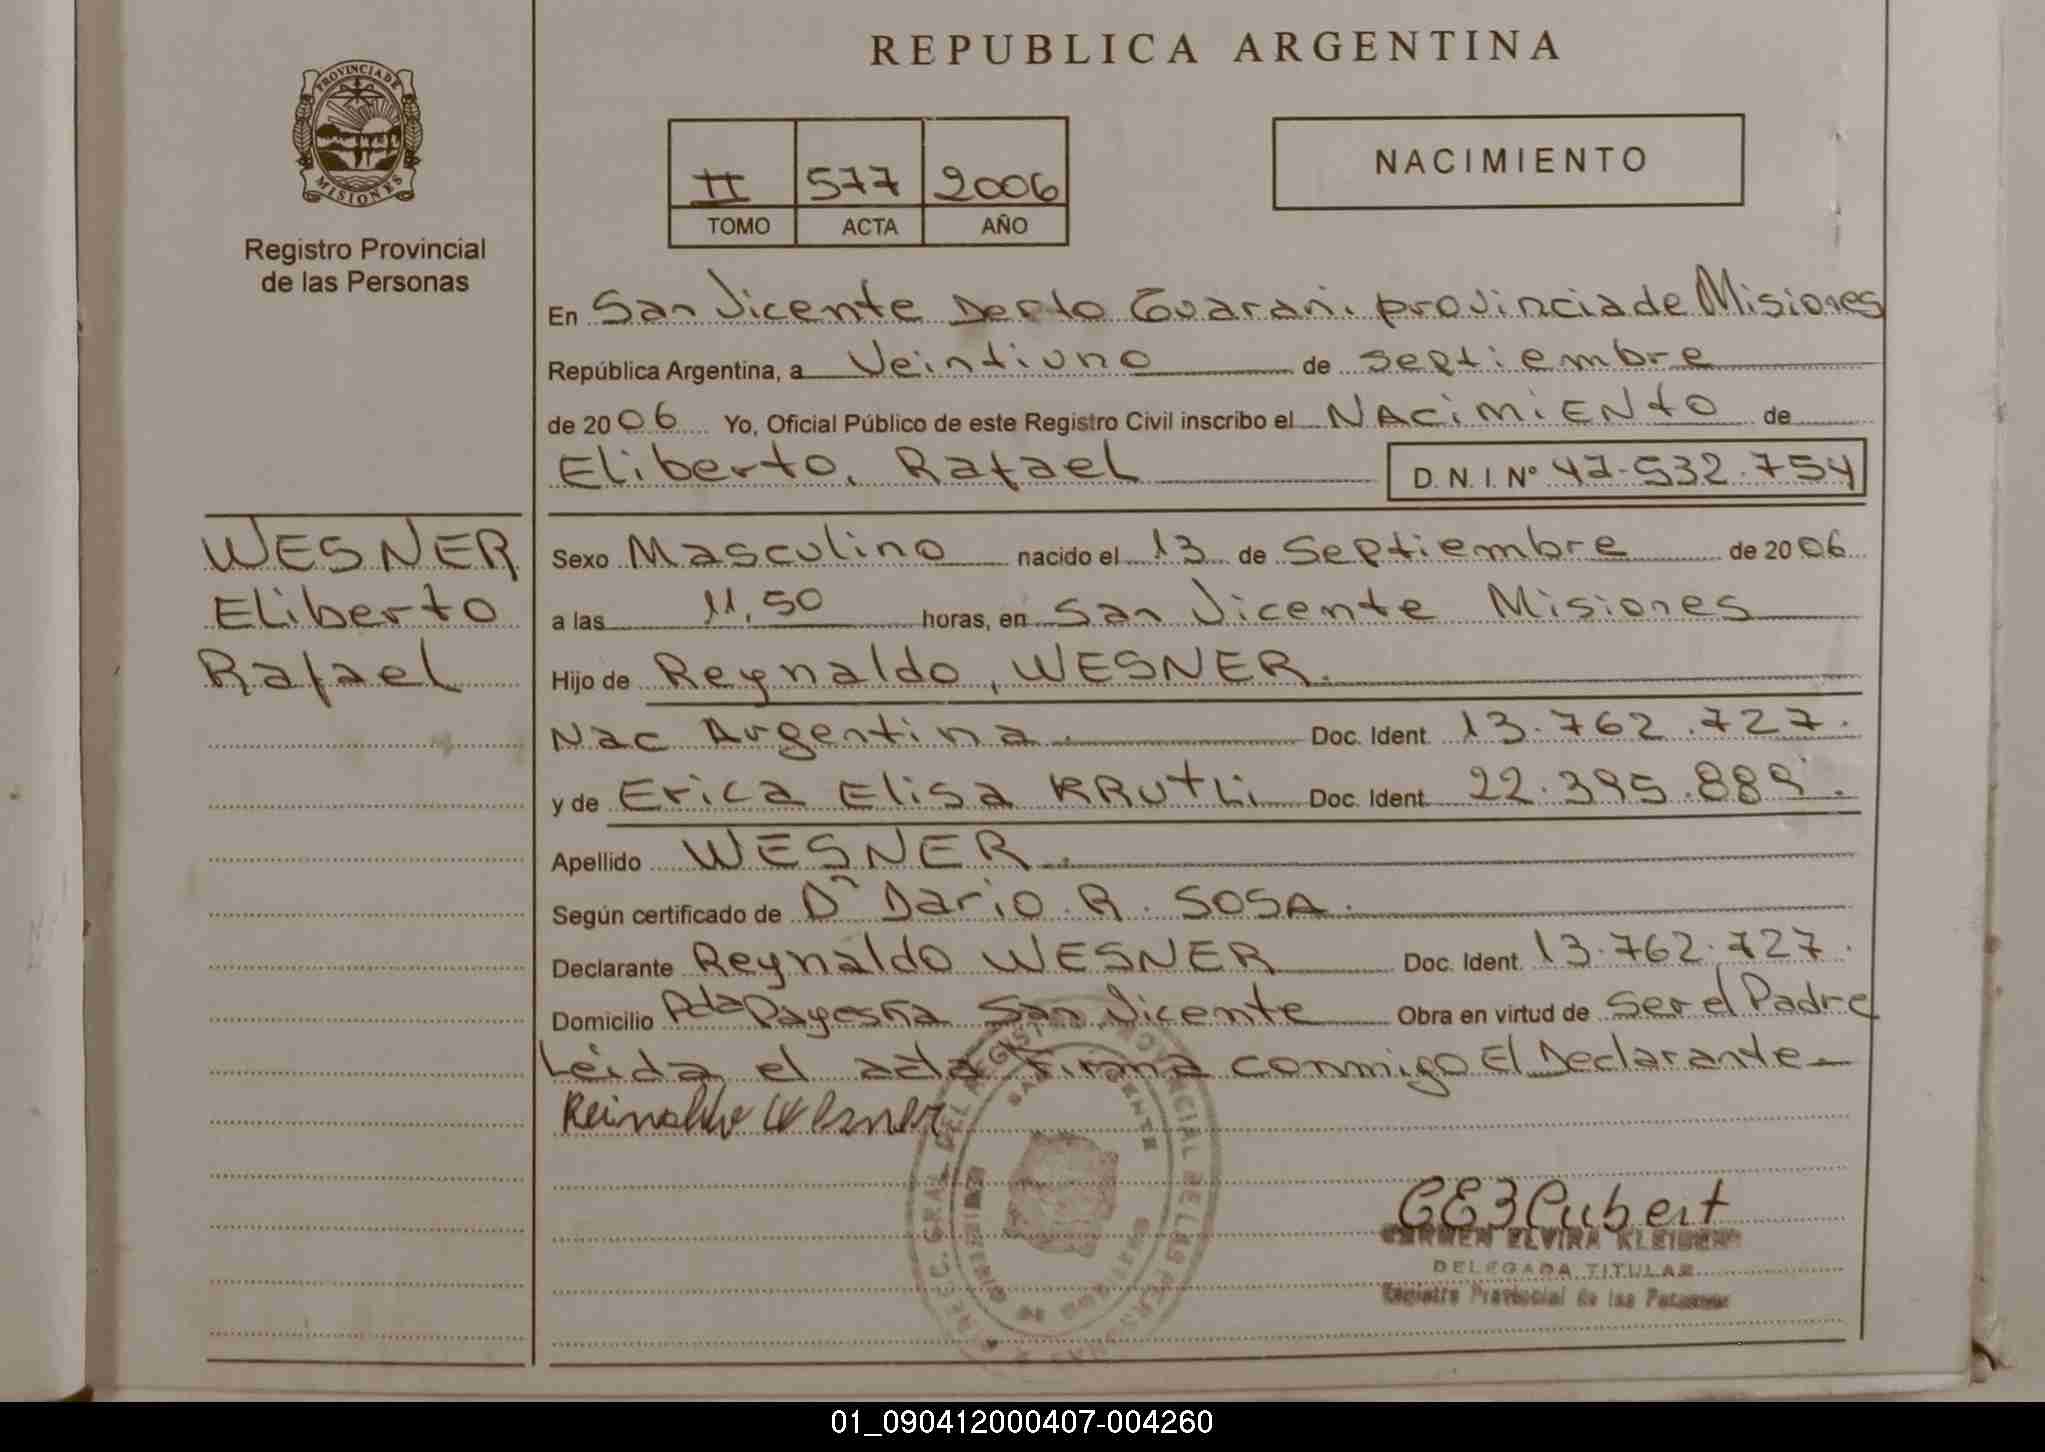 REPUBLICA ARGENTINA
PROVINCIA DE
MISIONES
Registro Provincial
de las Personas
II 577 2006
TOMO ACTA AÑO
NACIMIENTO
En San Vicente Depto Guarani. provincia de Misiones
República Argentina, a Veintiuno de septiembre
de 2006 Yo, Oficial Público de este Registro Civil inscribo el NACIMIENTO de
Eliberto, Rafael D. N. I. Nº 47.532.754
WESNER
Eliberto
Rafael
Sexo Masculino nacido el 13 de Septiembre de 2006
a las 11,50 horas, en San Vicente Misiones
Hijo de Reynaldo, WESNER.
Nac Argentina. Doc. Ident. 13.762.727.
y de Erica Elisa KRUTLI Doc. Ident. 22.395.889.
Apellido WESNER.
Según certificado de Dr Dario. R. SOSA.
Declarante Reynaldo WESNER Doc. Ident. 13.762.727.
Domicilio Pda San Vicente Obra en virtud de ser el Padre
Leida el acta Firma conmigo El Declarante
Reinaldo Wesner
CARMEN ELVIRA KLEIBERT
DELEGADA TITULAR
Registro Provincial de las Personas
01_090412000407-004260